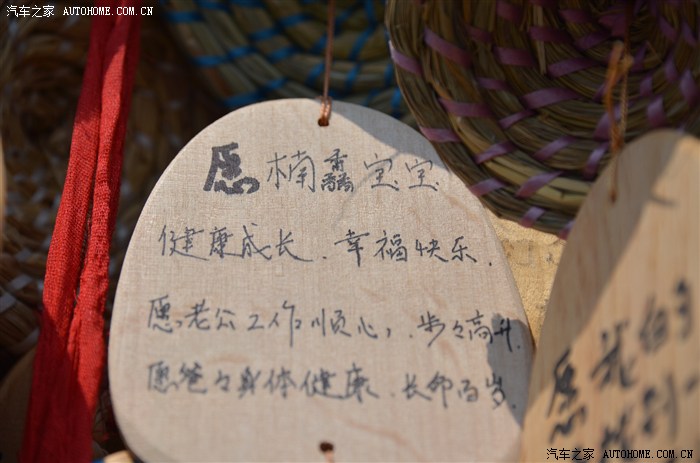 汽车之家 AUTOHOME.COM.CN
愿楠馫宝宝
健康成长、幸福快乐.
愿老公工作顺心,步々高升.
愿爸々身体健康、长命百岁.
愿
汽车之家 AUTOHOME.COM.CN